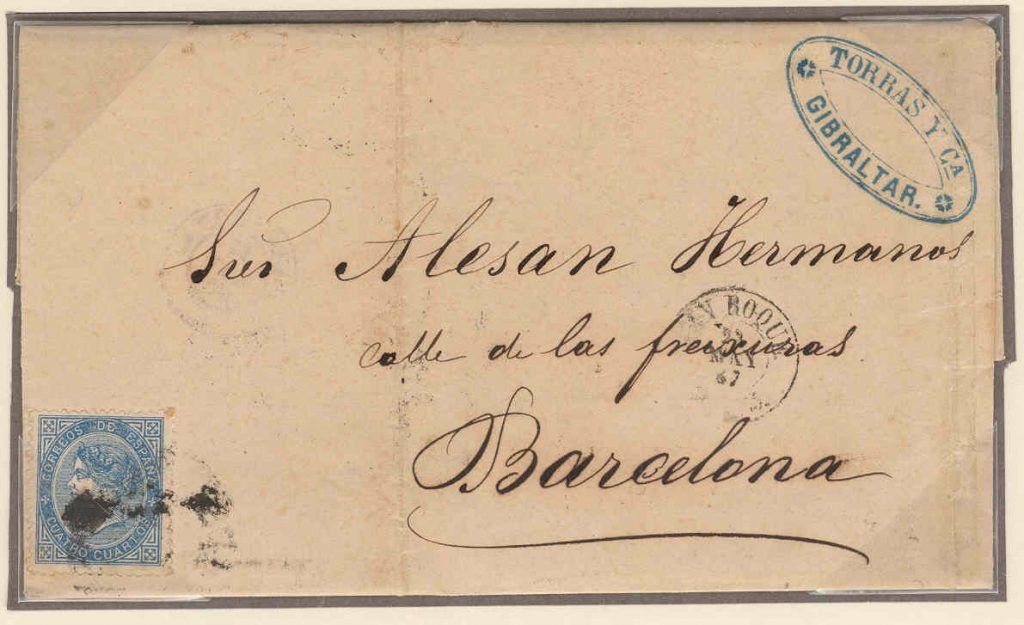 TORRAS Y CA
GIBRALTAR.
Sres Alesan Hermanos
calle de las freixuras
Barcelona
SAN ROQUE
22
MAY
67
CORREOS DE ESPAÑA
CUATRO CUARTOS